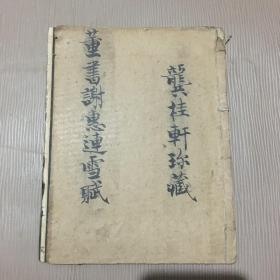 龔桂軒珍藏
董書謝惠連雪賦